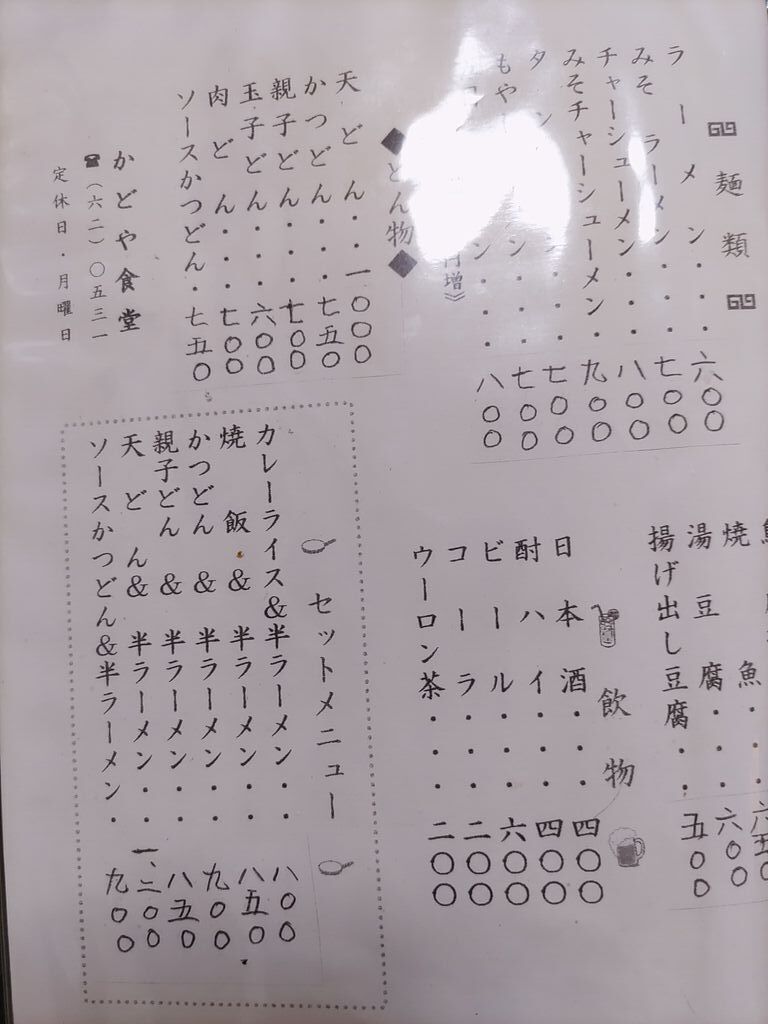 麺類
ラーメン・・・六〇〇
みそラーメン・・七〇〇
チャーシューメン・・八〇〇
みそチャーシューメン・九〇〇
タン
ン・・・七〇〇
もや
ン・・・七〇〇
ン・・・八〇〇
円増》
◆どん物◆
天どん・・一〇〇〇
かつどん・・・七五〇
親子どん・・・七〇〇
玉子どん・・・六〇〇
肉どん・・・七〇〇
ソースかつどん・七五〇
かどや食堂
☎(六二)〇五三一
定休日・月曜日
焼魚・・六五
湯豆腐・・・六〇〇
揚げ出し豆腐・・五〇〇
飲物
日本酒・・・四〇〇
酎ハイ・・・四〇〇
ビール・・・六〇〇
コーラ・・・二〇〇
ウーロン茶・・・二〇〇
セットメニュー
カレーライス&半ラーメン・・八〇〇
焼飯・&半ラーメン・・八五〇
かつどん&半ラーメン・・九〇〇
親子どん&半ラーメン・・八五〇
天どん&半ラーメン・・一、二〇〇
ソースかつどん&半ラーメン・九〇〇